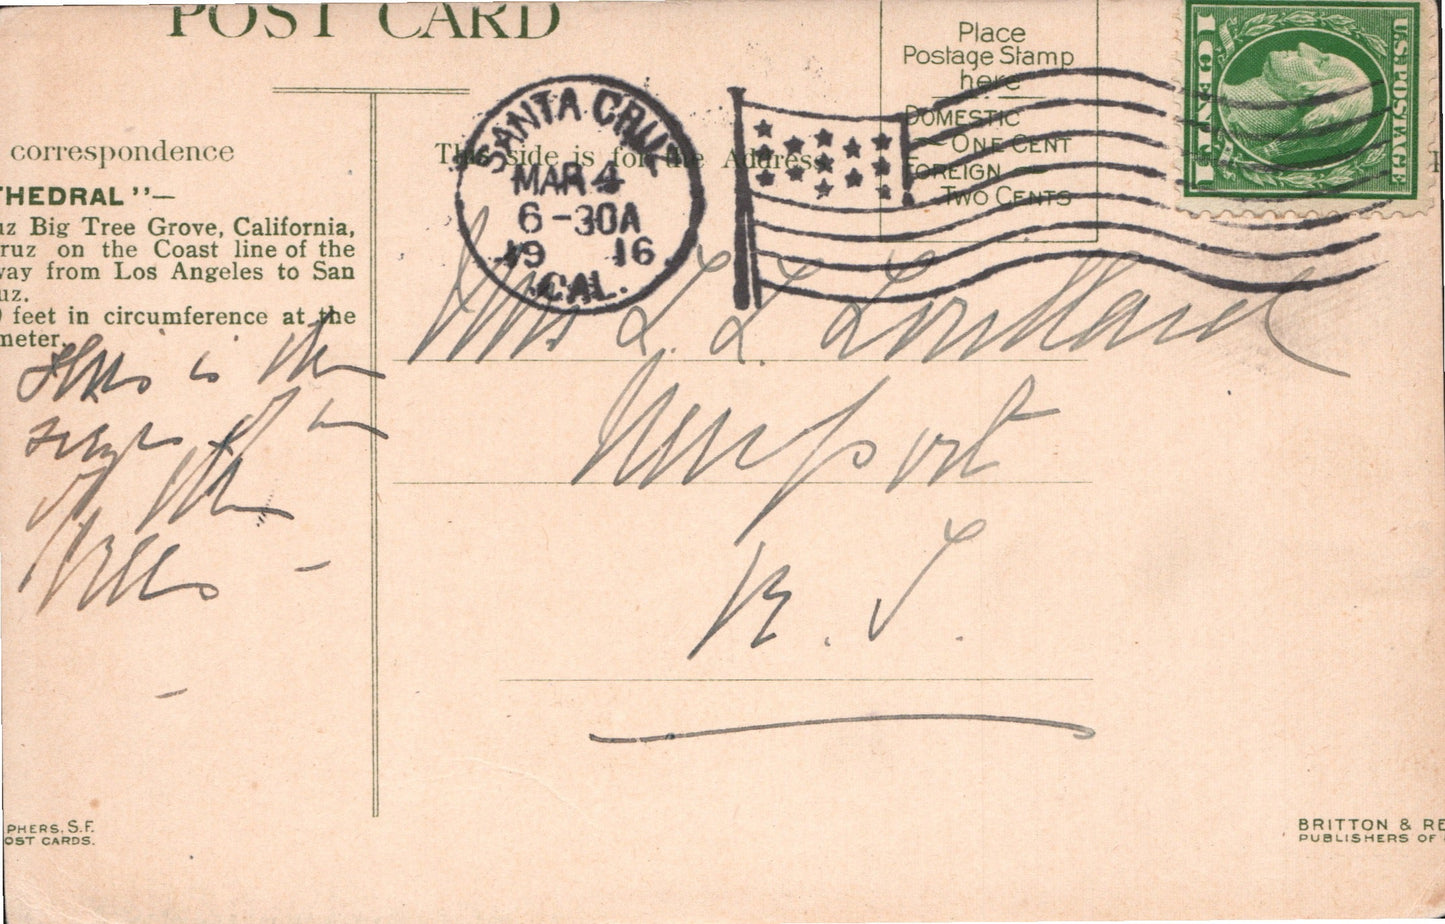 POST CARD
Place
Postage Stamp
here
DOMESTIC
ONE CENT
FOREIGN
TWO CENTS
U.S. POSTAGE
1 CENT 1
SANTA CRUZ
MAR 4
6-30A
19 16
CAL.
correspondence
This side is for the Address
THEDRAL"—
uz Big Tree Grove, California,
ruz on the Coast line of the
way from Los Angeles to San
uz.
feet in circumference at the
meter.
This is the
of the
trees –
Mrs L. L. Lorillard
Newport
R. I.
PHERS, S.F.
OST CARDS.
BRITTON & RE
PUBLISHERS OF